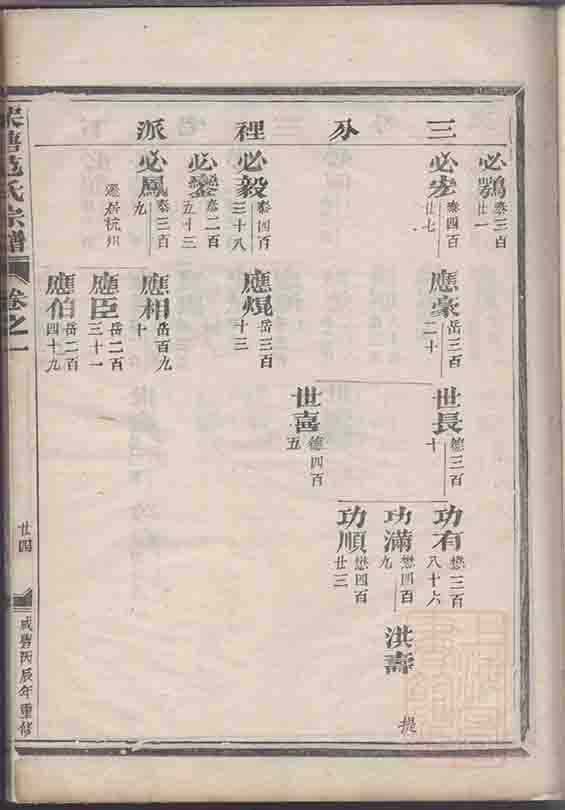 三分裡派
必鶚 泰三百廿一
泰四百廿七
應豪 岳三百二十
世長 德三百十
功有 懋三百八十六
功滿 懋四百九
洪壽 提
功順 懋四百廿三
世喜 德四百五
必毅 泰四百三十八
應焜 岳三百十三
必鑾 泰二百五十三
必鳳 泰三百九
遷居杭州
應相 岳百九十
應臣 岳二百三十一
應伯 岳二百四十九
范氏宗譜
卷之一
廿四
咸豐丙辰年重修